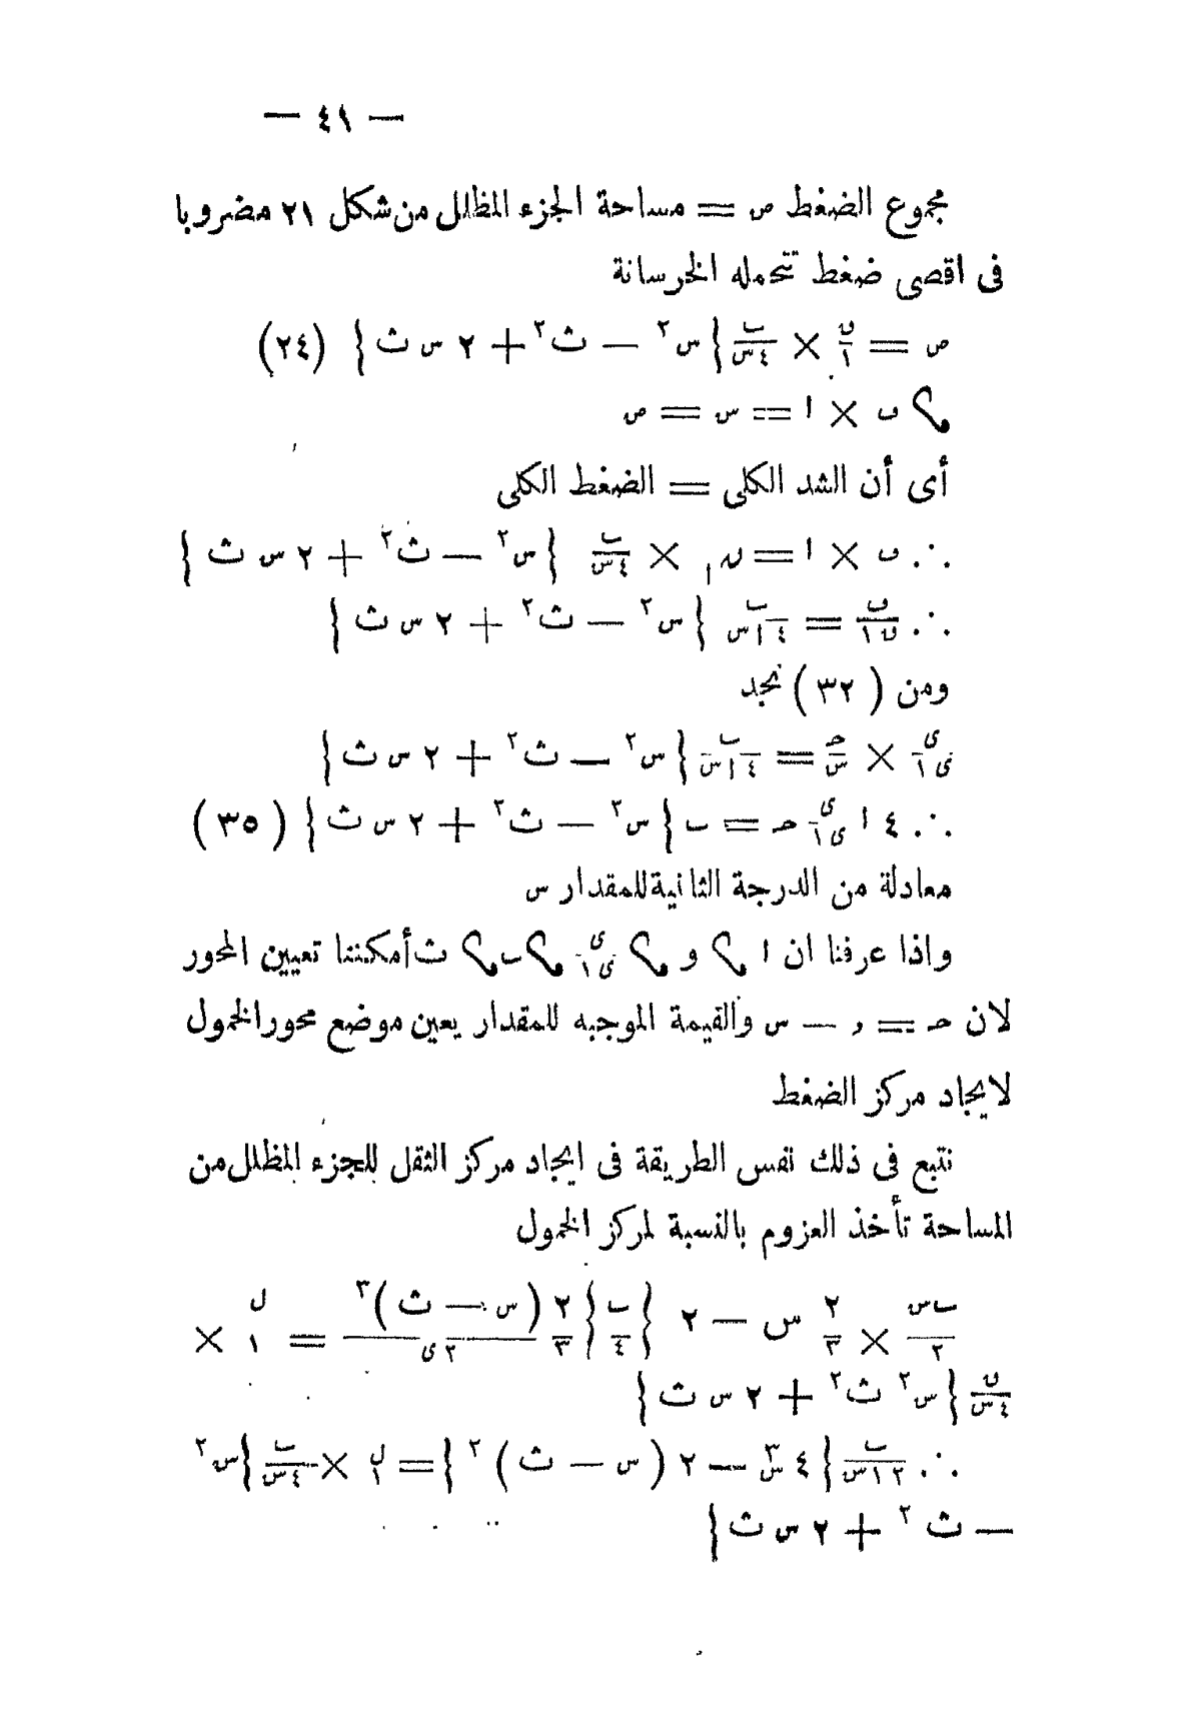 — ٤١ —
مجموع الضغط ص = مساحة الجزء المظلل من شكل ٢١ مضروبا
فى اقصى ضغط تتحمله الخرسانة
ص = ق/١ × ب/٤س {س٢ — ث٢ + ٢ س ث} (٢٤)
ں × ا = س = ص
أى أن الشد الكلى = الضغط الكلى
∴ ں × ا = ں١ × ب/٤س {س٢ — ث٢ + ٢ س ث}
∴ ں/ں١ = ب/٤اس {س٢ — ث٢ + ٢ س ث}
ومن (٣٢) نجد
ى/ى١ × حـ/س = ب/٤اس {س٢ — ث٢ + ٢ س ث}
∴ ٤ ا ى/ى١ حـ = ب {س٢ — ث٢ + ٢ س ث} (٣٥)
معادلة من الدرجة الثانية للمقدار س
واذا عرفنا ان ا و ى/ى١ ب ث أمكننا تعيين المحور
لان حـ = و — س والقيمة الموجبه للمقدار يعين موضع محور الخمول
لايجاد مركز الضغط
نتبع فى ذلك نفس الطريقة فى ايجاد مركز الثقل للجزء المظلل من
المساحة تأخذ العزوم بالنسبة لمركز الخمول
ب س/٢ × ٢/٣ س — ٢ {ب/٤} {٢/٣ (س — ث)٣/٢ى = ل/١ ×
ں/٤س {س٢ ث٢ + ٢ س ث}
∴ ب/١٢س {٤ س٣ — ٢ (س — ث)٢} = ل/١ × ب/٤س {س٢
— ث٢ + ٢ س ث}